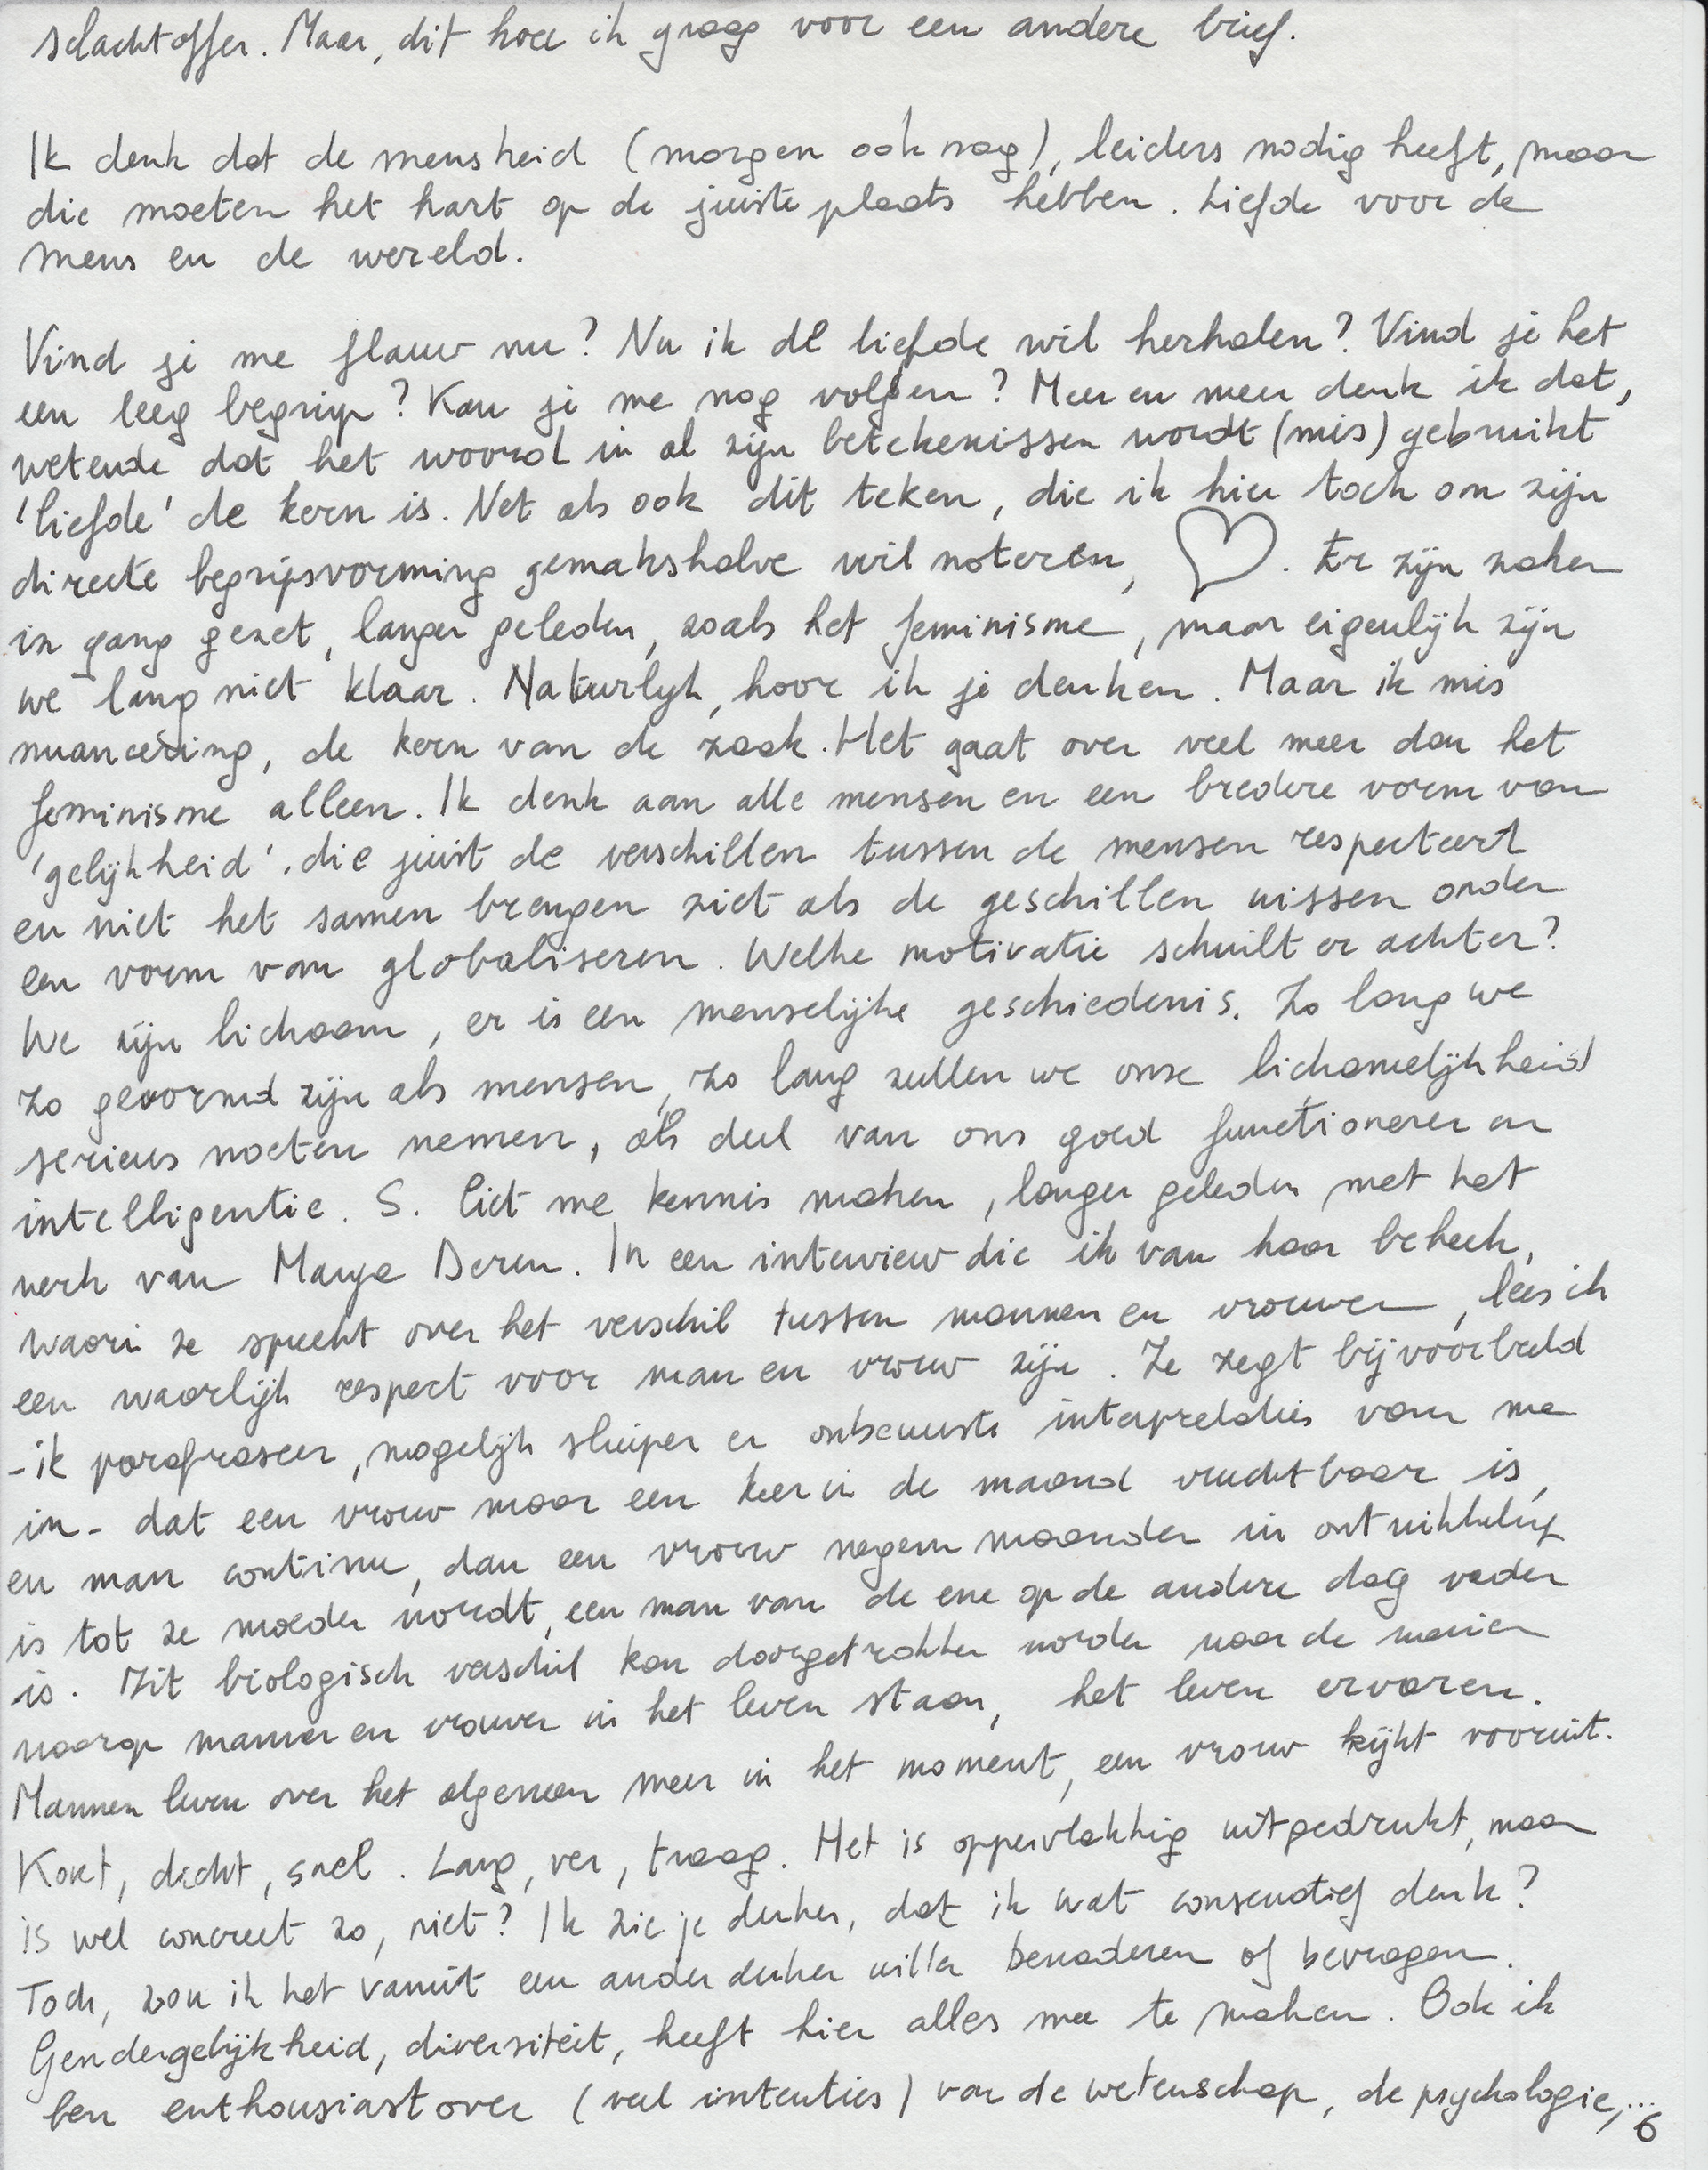 slachtoffer. Maar, dit hou ik graag voor een andere brief.
Ik denk dat de mensheid (morgen ook nog), leiders nodig heeft, maar
die moeten het hart op de juiste plaats hebben. Liefde voor de
mens en de wereld.
Vind je me flauw nu? Nu ik de liefde wil herhalen? Vind je het
een leeg begrip? Kan je me nog volgen? Meer en meer denk ik dat,
wetende dat het woord in al zijn betekenissen wordt (mis)gebruikt
'liefde' de kern is. Net als ook dit teken, die ik hier toch om zijn
directe begripsvorming gemakshalve wil noteren, ♡. Er zijn zaken
in gang gezet, langer geleden, zoals het feminisme, maar eigenlijk zijn
we lang niet klaar. Natuurlijk, hoor ik je denken. Maar ik mis
nuancering, de kern van de zaak. Het gaat over veel meer dan het
feminisme alleen. Ik denk aan alle mensen en een bredere vorm van
'gelijkheid', die juist de verschillen tussen de mensen respecteert
en niet het samen brengen ziet als de geschillen wissen onder
een vorm van globaliseren. Welke motivatie schuilt er achter?
We zijn lichaam, er is een menselijke geschiedenis. Zo lang we
zo gevormd zijn als mensen, zo lang zullen we onze lichamelijkheid
serieus moeten nemen, als deel van ons goed functioneren en
intelligentie. S. liet me kennis maken, langer geleden met het
werk van Maya Deren. In een interview die ik van haar bekeek,
waarin ze spreekt over het verschil tussen mannen en vrouwen, lees ik
een waarlijk respect voor man en vrouw zijn. Ze zegt bijvoorbeeld
-ik parafraseer, mogelijk sluipen er onbewuste interpretaties van me
in- dat een vrouw maar een keer in de maand vruchtbaar is,
en man continu, dan een vrouw negen maanden in ontwikkeling
is tot ze moeder wordt, een man van de ene op de andere dag vader
is. Dit biologisch verschil kan doorgetrokken worden naar de manier
waarop mannen en vrouwen in het leven staan, het leven ervaren.
Mannen leven over het algemeen meer in het moment, een vrouw kijkt vooruit.
Kort, dicht, snel. Lang, ver, traag. Het is oppervlakkig uitgedrukt, maar
is wel concreet zo, niet? Ik zie je denken, dat ik wat conservatief denk?
Toch, zou ik het vanuit een ander denken willen benaderen of bevragen.
Gendergelijkheid, diversiteit, heeft hier alles mee te maken. Ook ik
ben enthousiast over (veel intenties) van de wetenschap, de psychologie,...
6